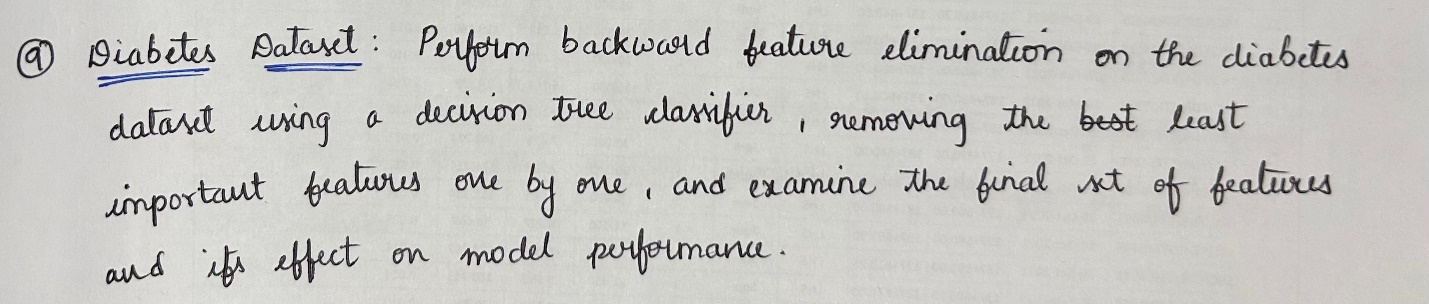 ⓐ Diabetes Dataset : Perform backward feature elimination on the diabetes
dataset using a decision tree classifier , removing the best least
important features one by one , and examine the final set of features
and its effect on model performance .